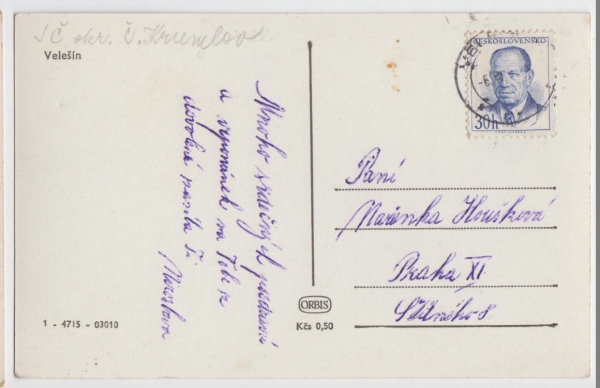 JČ okr. Č. Krumlov
Velešín
Mnoho srdečných pozdravů
a vzpomínek na Tebe z
dovolené zasílá Ti
Miroslava
1 - 4715 - 03010
ORBIS
Kčs 0,50
ČESKOSLOVENSKO
30h
Paní
Mařenka Houšková
Praha XI